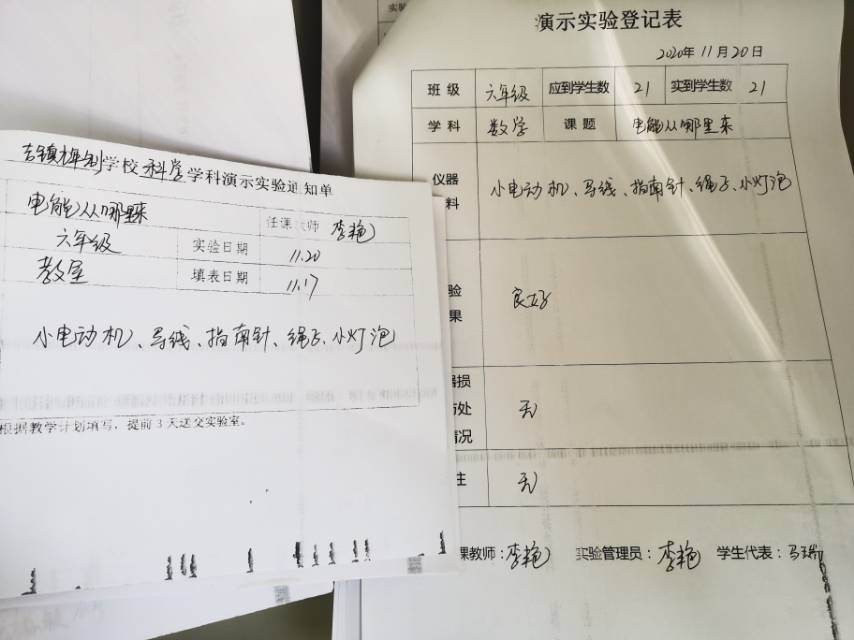 学校科学学科演示实验通知单
电能从哪里来
任课教师 李艳
六年级
实验日期
11.20
教室
填表日期
11.17
小电动机、导线、指南针、绳子、小灯泡
根据教学计划填写，提前3天送交实验室。
实验
演示实验登记表
2020年11月20日
班级 六年级 应到学生数 21 实到学生数 21
学科 数学 课题 电能从哪里来
仪器
料
小电动机、导线、指南针、绳子、小灯泡
验
果
良好
损
处
情况
无
注
无
课教师：李艳 实验管理员：李艳 学生代表：马